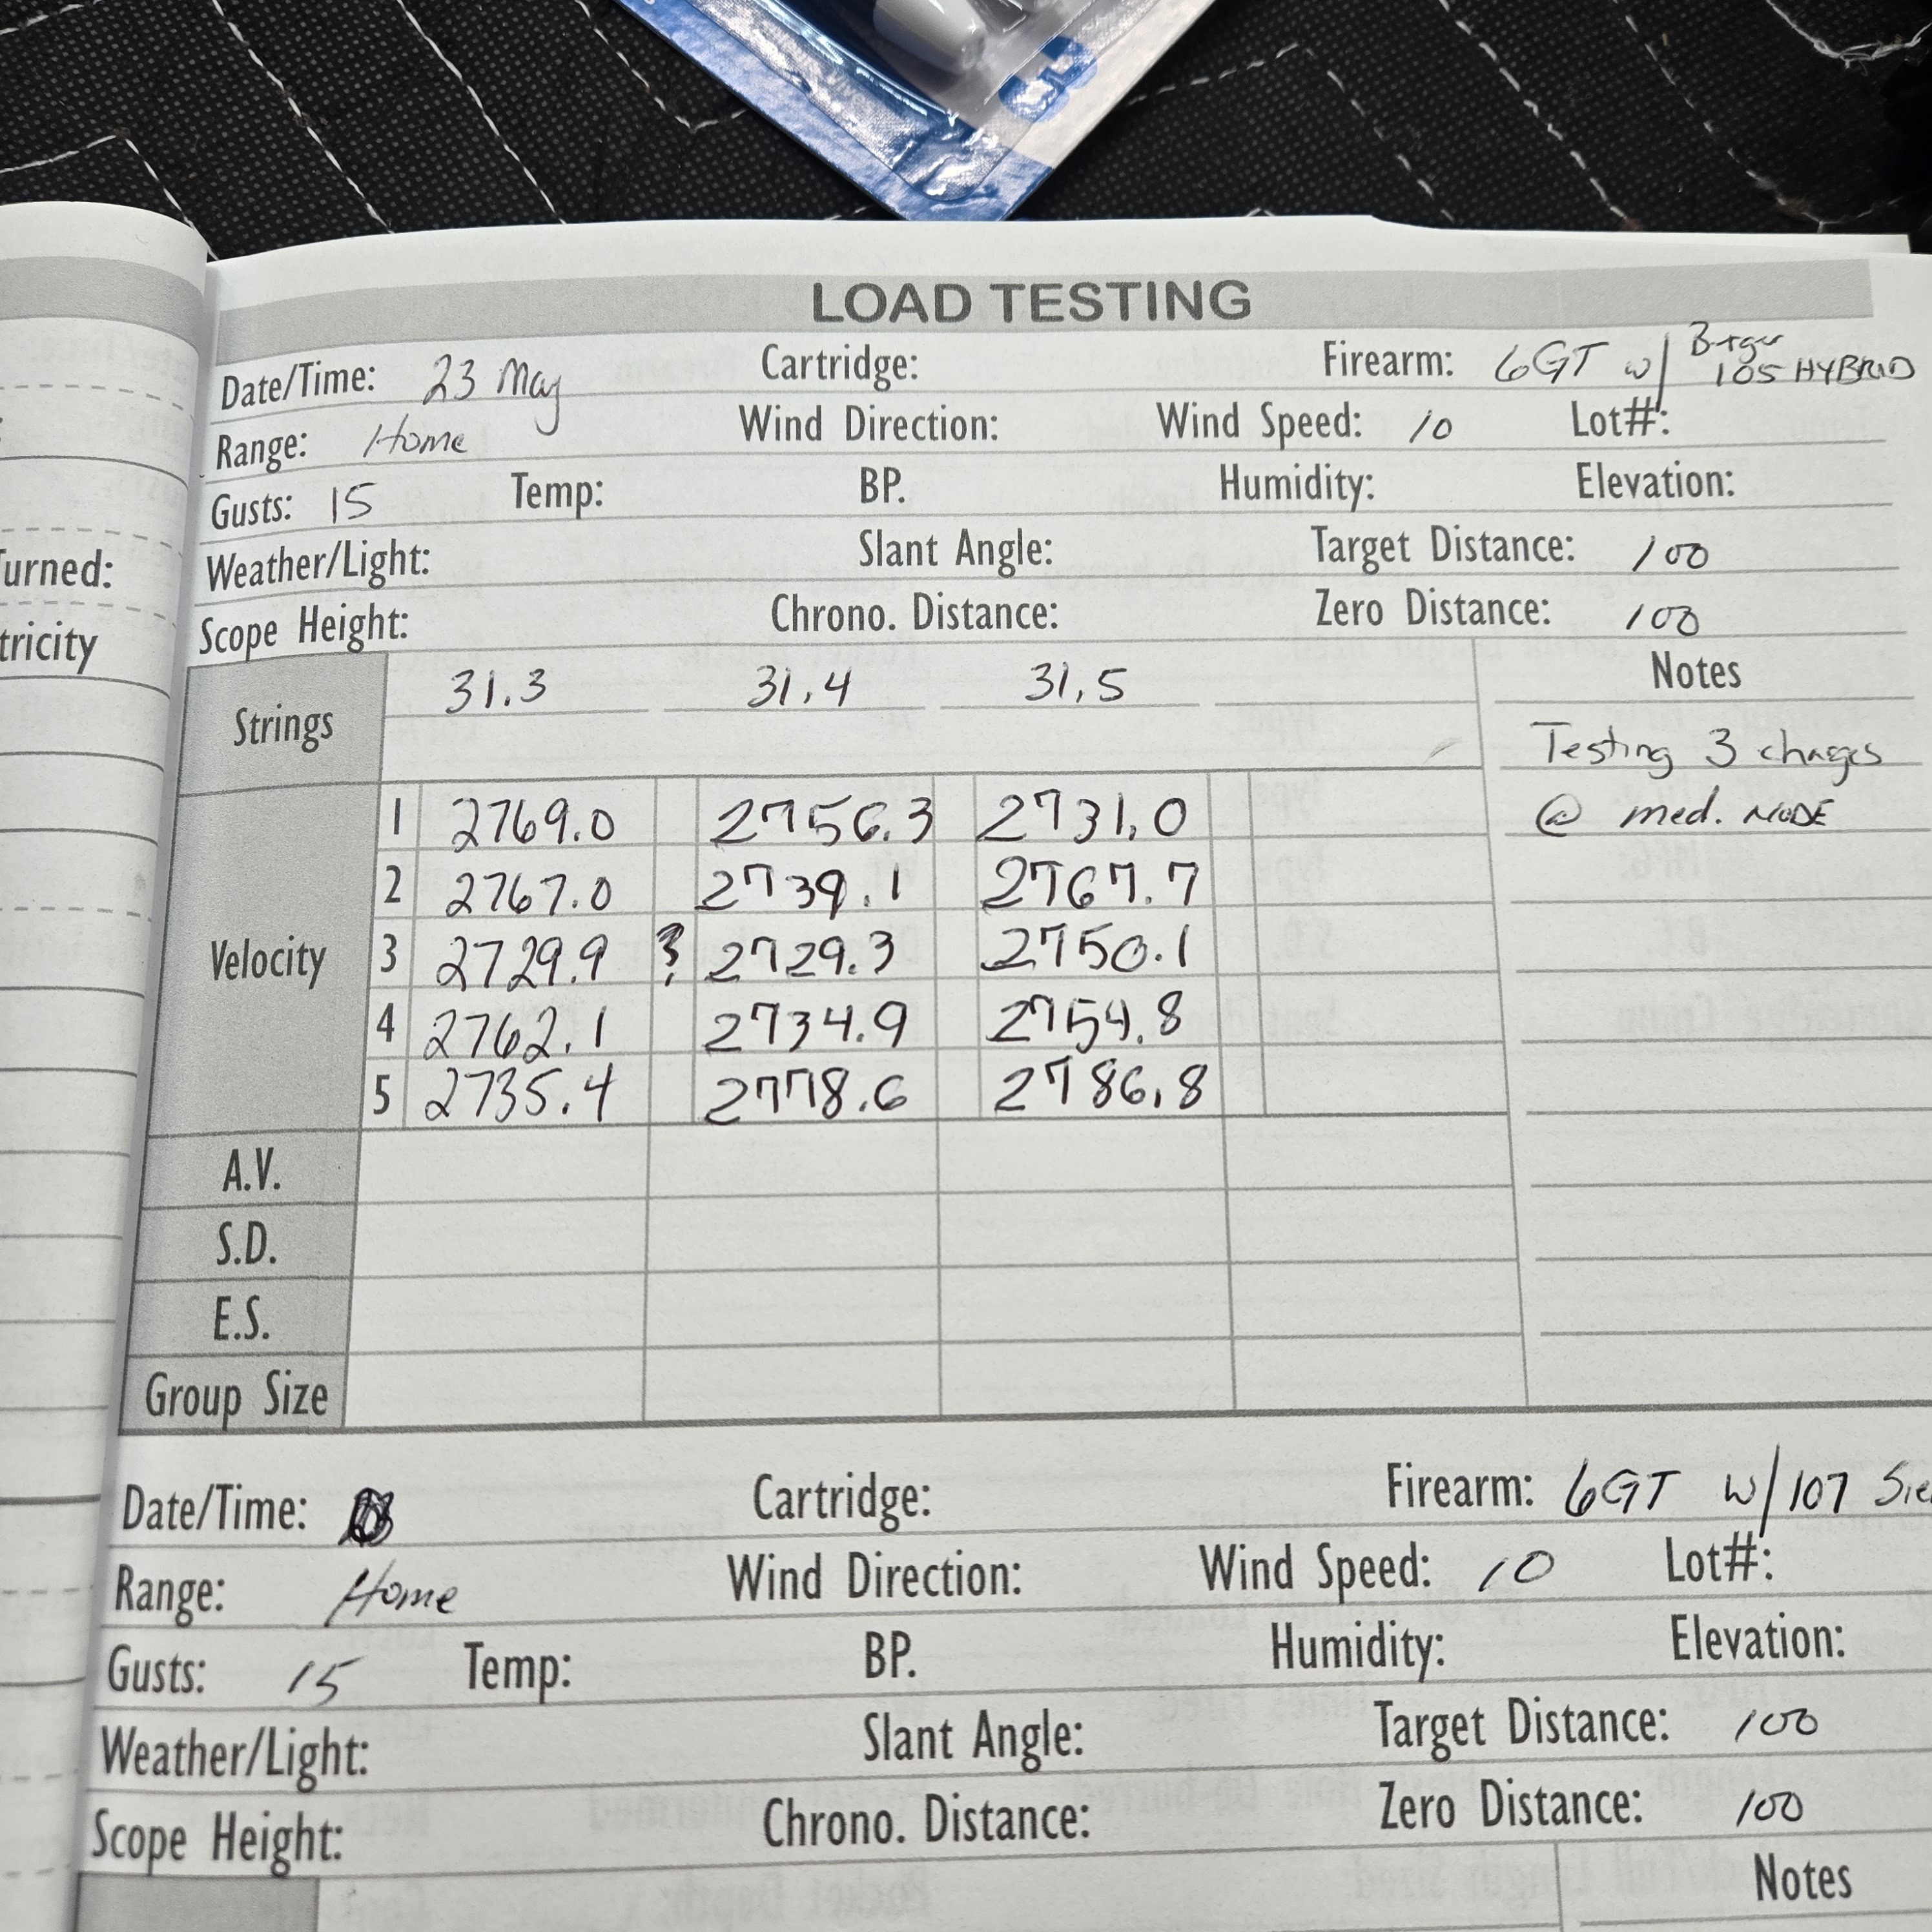 LOAD TESTING
Date/Time: 23 May Cartridge: Firearm: 6GT w/ Berger 105 HYBRID
Range: Home Wind Direction: Wind Speed: 10 Lot#:
Gusts: 15 Temp: BP. Humidity: Elevation:
urned:
Weather/Light: Slant Angle: Target Distance: 100
tricity
Scope Height: Chrono. Distance: Zero Distance: 100
Strings 31.3 31.4 31.5 Notes
Testing 3 charges
@ med. NODE
Velocity
1 2769.0 2756.3 2731.0
2 2767.0 2739.1 2767.7
3 2729.9 ? 2729.3 2750.1
4 2762.1 2734.9 2754.8
5 2735.4 2778.6 2786.8
A.V.
S.D.
E.S.
Group Size
Date/Time: Cartridge: Firearm: 6GT w/107 Sie
Range: Home Wind Direction: Wind Speed: 10 Lot#:
Gusts: 15 Temp: BP. Humidity: Elevation:
Weather/Light: Slant Angle: Target Distance: 100
Scope Height: Chrono. Distance: Zero Distance: 100
Notes